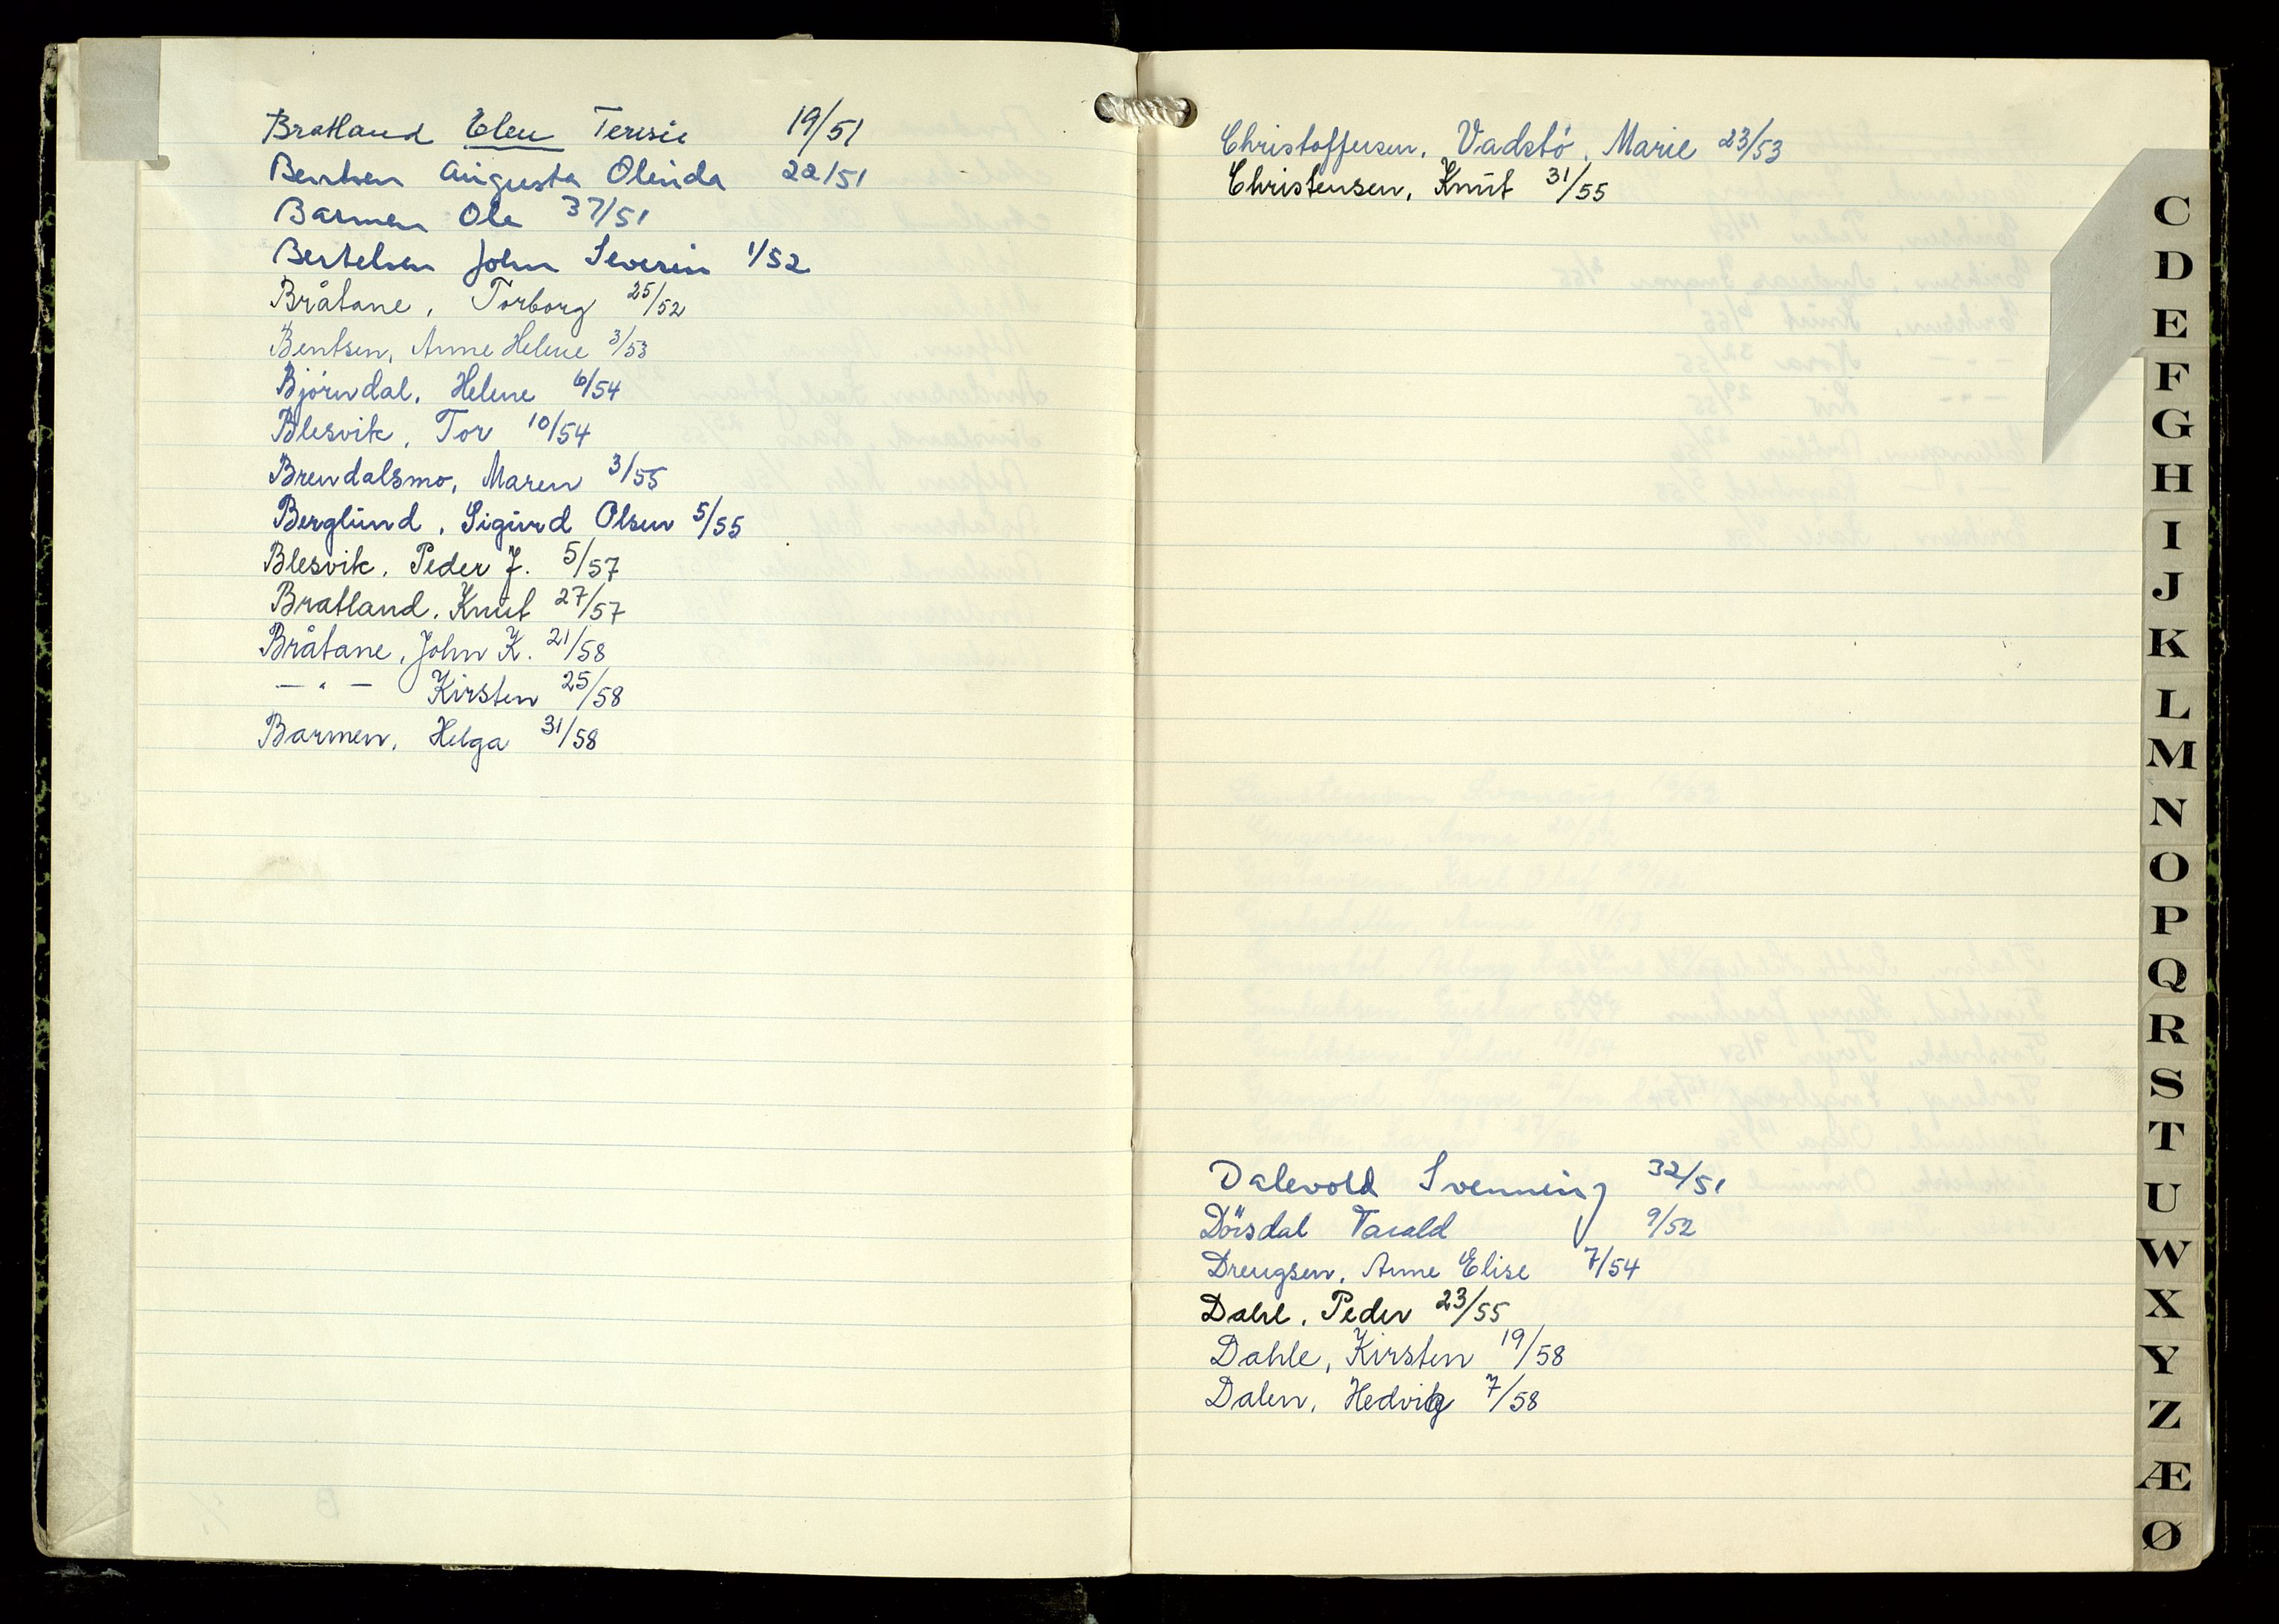 Bratland Elen Teresie 19/51
Bentsen Augusta Olinda 22/51
Barmen Ole 37/51
Bertelsen John Severin 1/52
Bråtane, Torborg 25/52
Bentsen, Anne Helene 3/53
Björndal, Helene 6/54
Blesvik, Tor 10/54
Brendalsmo, Maren 3/55
Berglund, Sigurd Olsen 5/55
Blesvik, Peder J. 5/57
Bratland, Knut 27/57
Bråtane, John K. 21/58
— " — Kirsten 25/58
Barmen, Helga 31/58
Christoffersen, Vadstö, Marie 23/53
Christensen, Knut 31/55
Dalevold Svenning 32/51
Dörsdal Tarald 9/52
Drengsen, Anne Elise 7/54
Dahl, Peder 23/55
Dahle, Kirsten 19/58
Dalen, Hedvig 7/58
C
D
E
F
G
H
I
J
K
L
M
N
O
P
Q
R
S
T
U
W
X
Y
Z
Æ
Ø